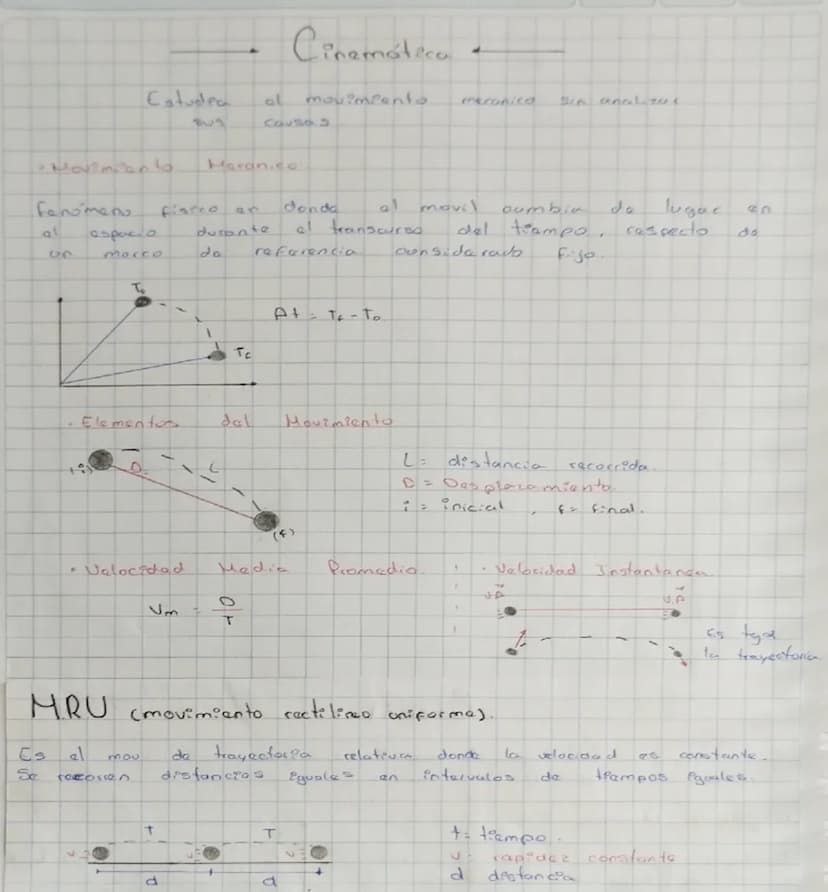 Cinemática
Estudia el movimiento mecanico sin analizar
sus causas
· Movimiento Mecanico
Fenómeno fisico en donde el movil cambia de lugar en
el espacio durante el transcurso del tiempo, respecto de
un marco de referencia considerado fijo.
T₀
Δt = Tf - T₀
Tf
· Elementos del Movimiento
(i) D L
L = distancia recorrida.
D = Desplazamiento.
i = inicial, f = final.
(f)
· Velocidad Media Promedio
· Velocidad Instantanea
Vm = D/T
Es tga
la trayectoria
M.R.U (movimiento rectilineo uniforme).
Es el mov de trayectoria relativa donde la velocidad es constante.
Se recorren distancias iguales en intervalos de tiempos iguales.
T T
t = tiempo.
v v v
v: rapidez constante
d d
d distancia